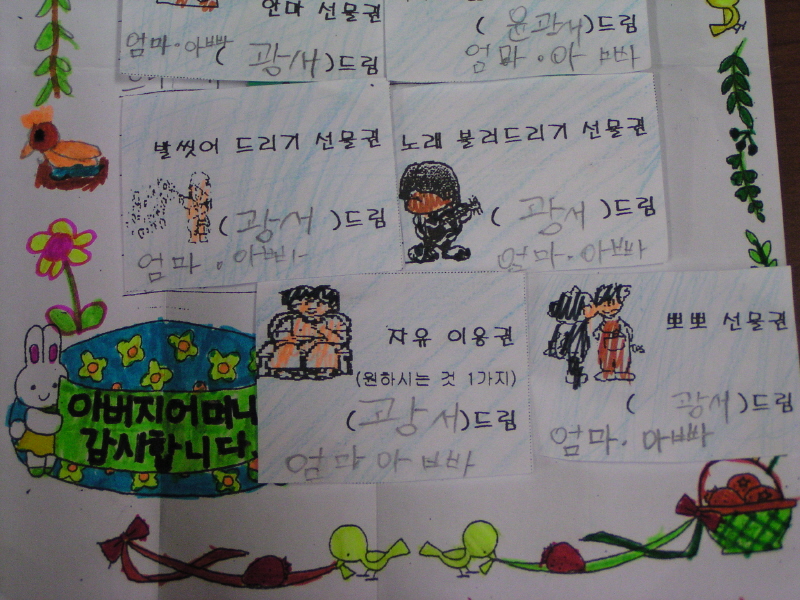 안마 선물권
엄마·아빠 (광서)드림
(윤광서)드림
엄마·아빠
발씻어 드리기 선물권
(광서)드림
엄마·아빠
노래 불러드리기 선물권
(광서)드림
엄마·아빠
자유 이용권
(원하시는 것 1가지)
(광서)드림
엄마 아빠
뽀뽀 선물권
(광서)드림
엄마·아빠
아버지어머니
감사합니다.